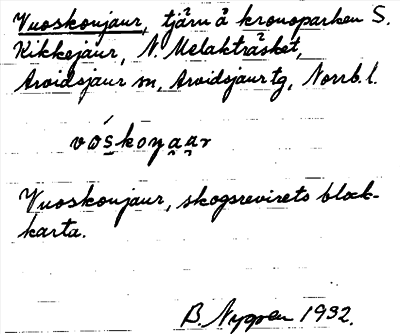 Vuoskonjaur, tjärn å kronoparken S.
Kikkejaur, N. Melakträsket,
Arvidsjaur sn, Arvidsjaur tg, Norrb. l.
Vuoskonjaur, skogsrevirets block-
karta.
B. Nygren 1932.